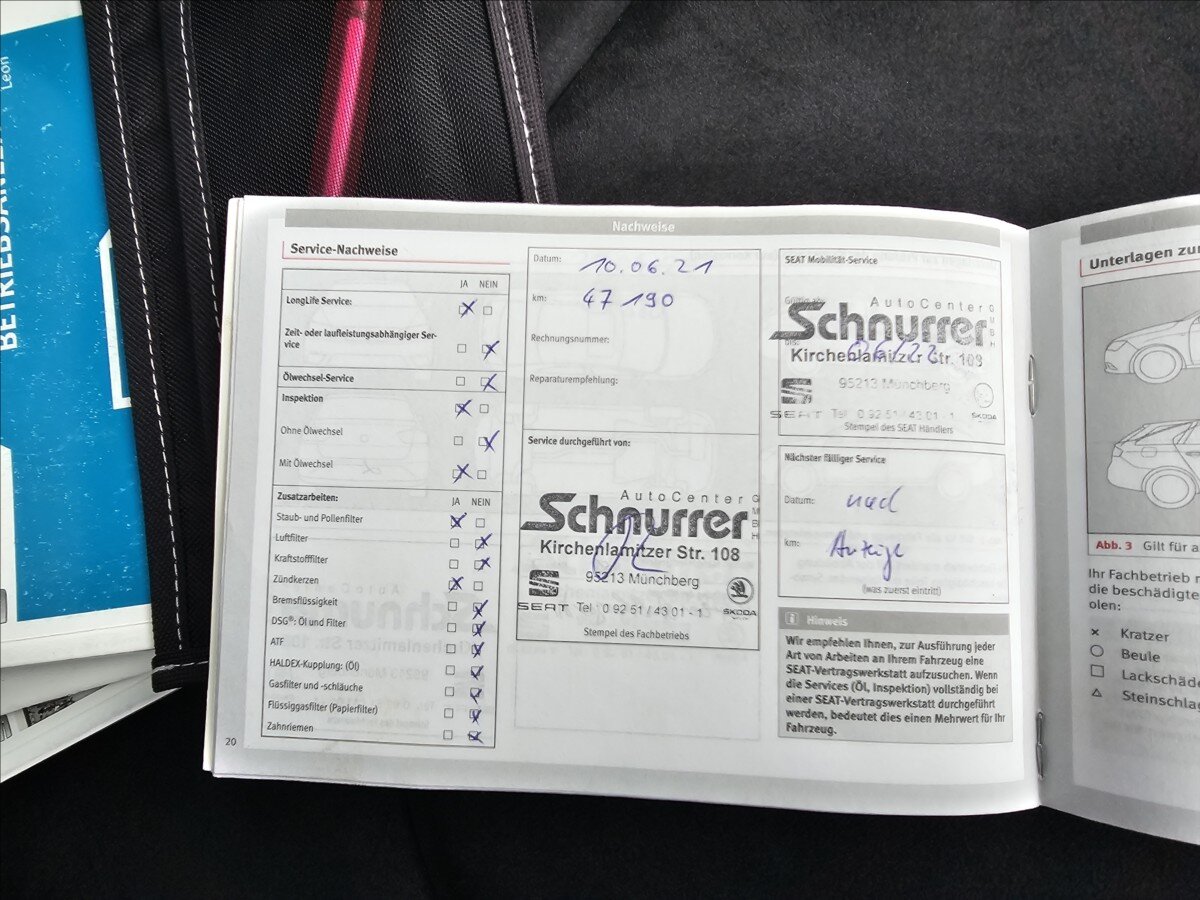 Leon
Nachweise
Service-Nachweise
JA NEIN
LongLife Service:
Zeit- oder laufleistungsabhängiger Ser-
vice
Ölwechsel-Service
Inspektion
Ohne Ölwechsel
Mit Ölwechsel
Zusatzarbeiten: JA NEIN
Staub- und Pollenfilter
Luftfilter
Kraftstofffilter
Zündkerzen
Bremsflüssigkeit
DSG®: Öl und Filter
ATF
HALDEX-Kupplung: (Öl)
Gasfilter und -schläuche
Flüssiggasfilter (Papierfilter)
Zahnriemen
20
Datum: 10.06.21
km: 47 190
Rechnungsnummer:
Reparaturempfehlung:
Service durchgeführt von:
AutoCenter GMBH
Schnurrer
Kirchenlamitzer Str. 108
95213 Münchberg
SEAT Tel 0 92 51 / 43 01 - 1 ŠKODA
Stempel des Fachbetriebs
SEAT Mobilität-Service
AutoCenter GMBH
Schnurrer
06/22
Kirchenlamitzer Str. 108
95213 Münchberg
SEAT Tel 0 92 51 / 43 01 - 1 ŠKODA
Stempel des SEAT Händlers
Nächster fälliger Service
Datum: nach
km: Anzeige
(was zuerst eintritt)
i Hinweis
Wir empfehlen Ihnen, zur Ausführung jeder
Art von Arbeiten an Ihrem Fahrzeug eine
SEAT-Vertragswerkstatt aufzusuchen. Wenn
die Services (Öl, Inspektion) vollständig bei
einer SEAT-Vertragswerkstatt durchgeführt
werden, bedeutet dies einen Mehrwert für Ihr
Fahrzeug.
Unterlagen zur
Abb. 3 Gilt für a
Ihr Fachbetrieb
die beschädigte
olen:
Kratzer
Beule
Lackschäde
Steinschlag